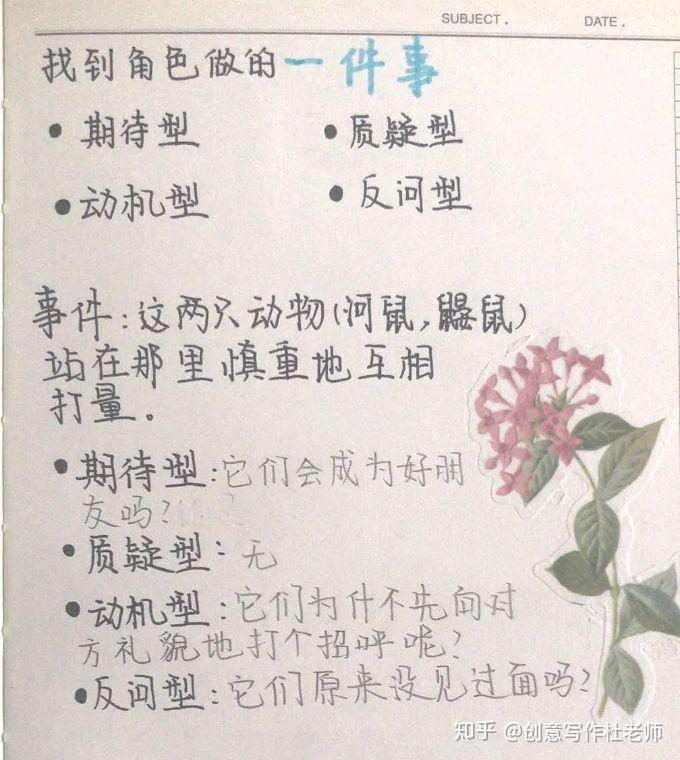 SUBJECT. DATE.
找到角色做的一件事
• 期待型 • 质疑型
• 动机型 • 反问型
事件：这两只动物(河鼠，鼹鼠)
站在那里慎重地互相
打量。
• 期待型：它们会成为好朋
友吗？
• 质疑型：无
• 动机型：它们为什不先向对
方礼貌地打个招呼呢？
• 反问型：它们原来没见过面吗？
知乎 @创意写作杜老师